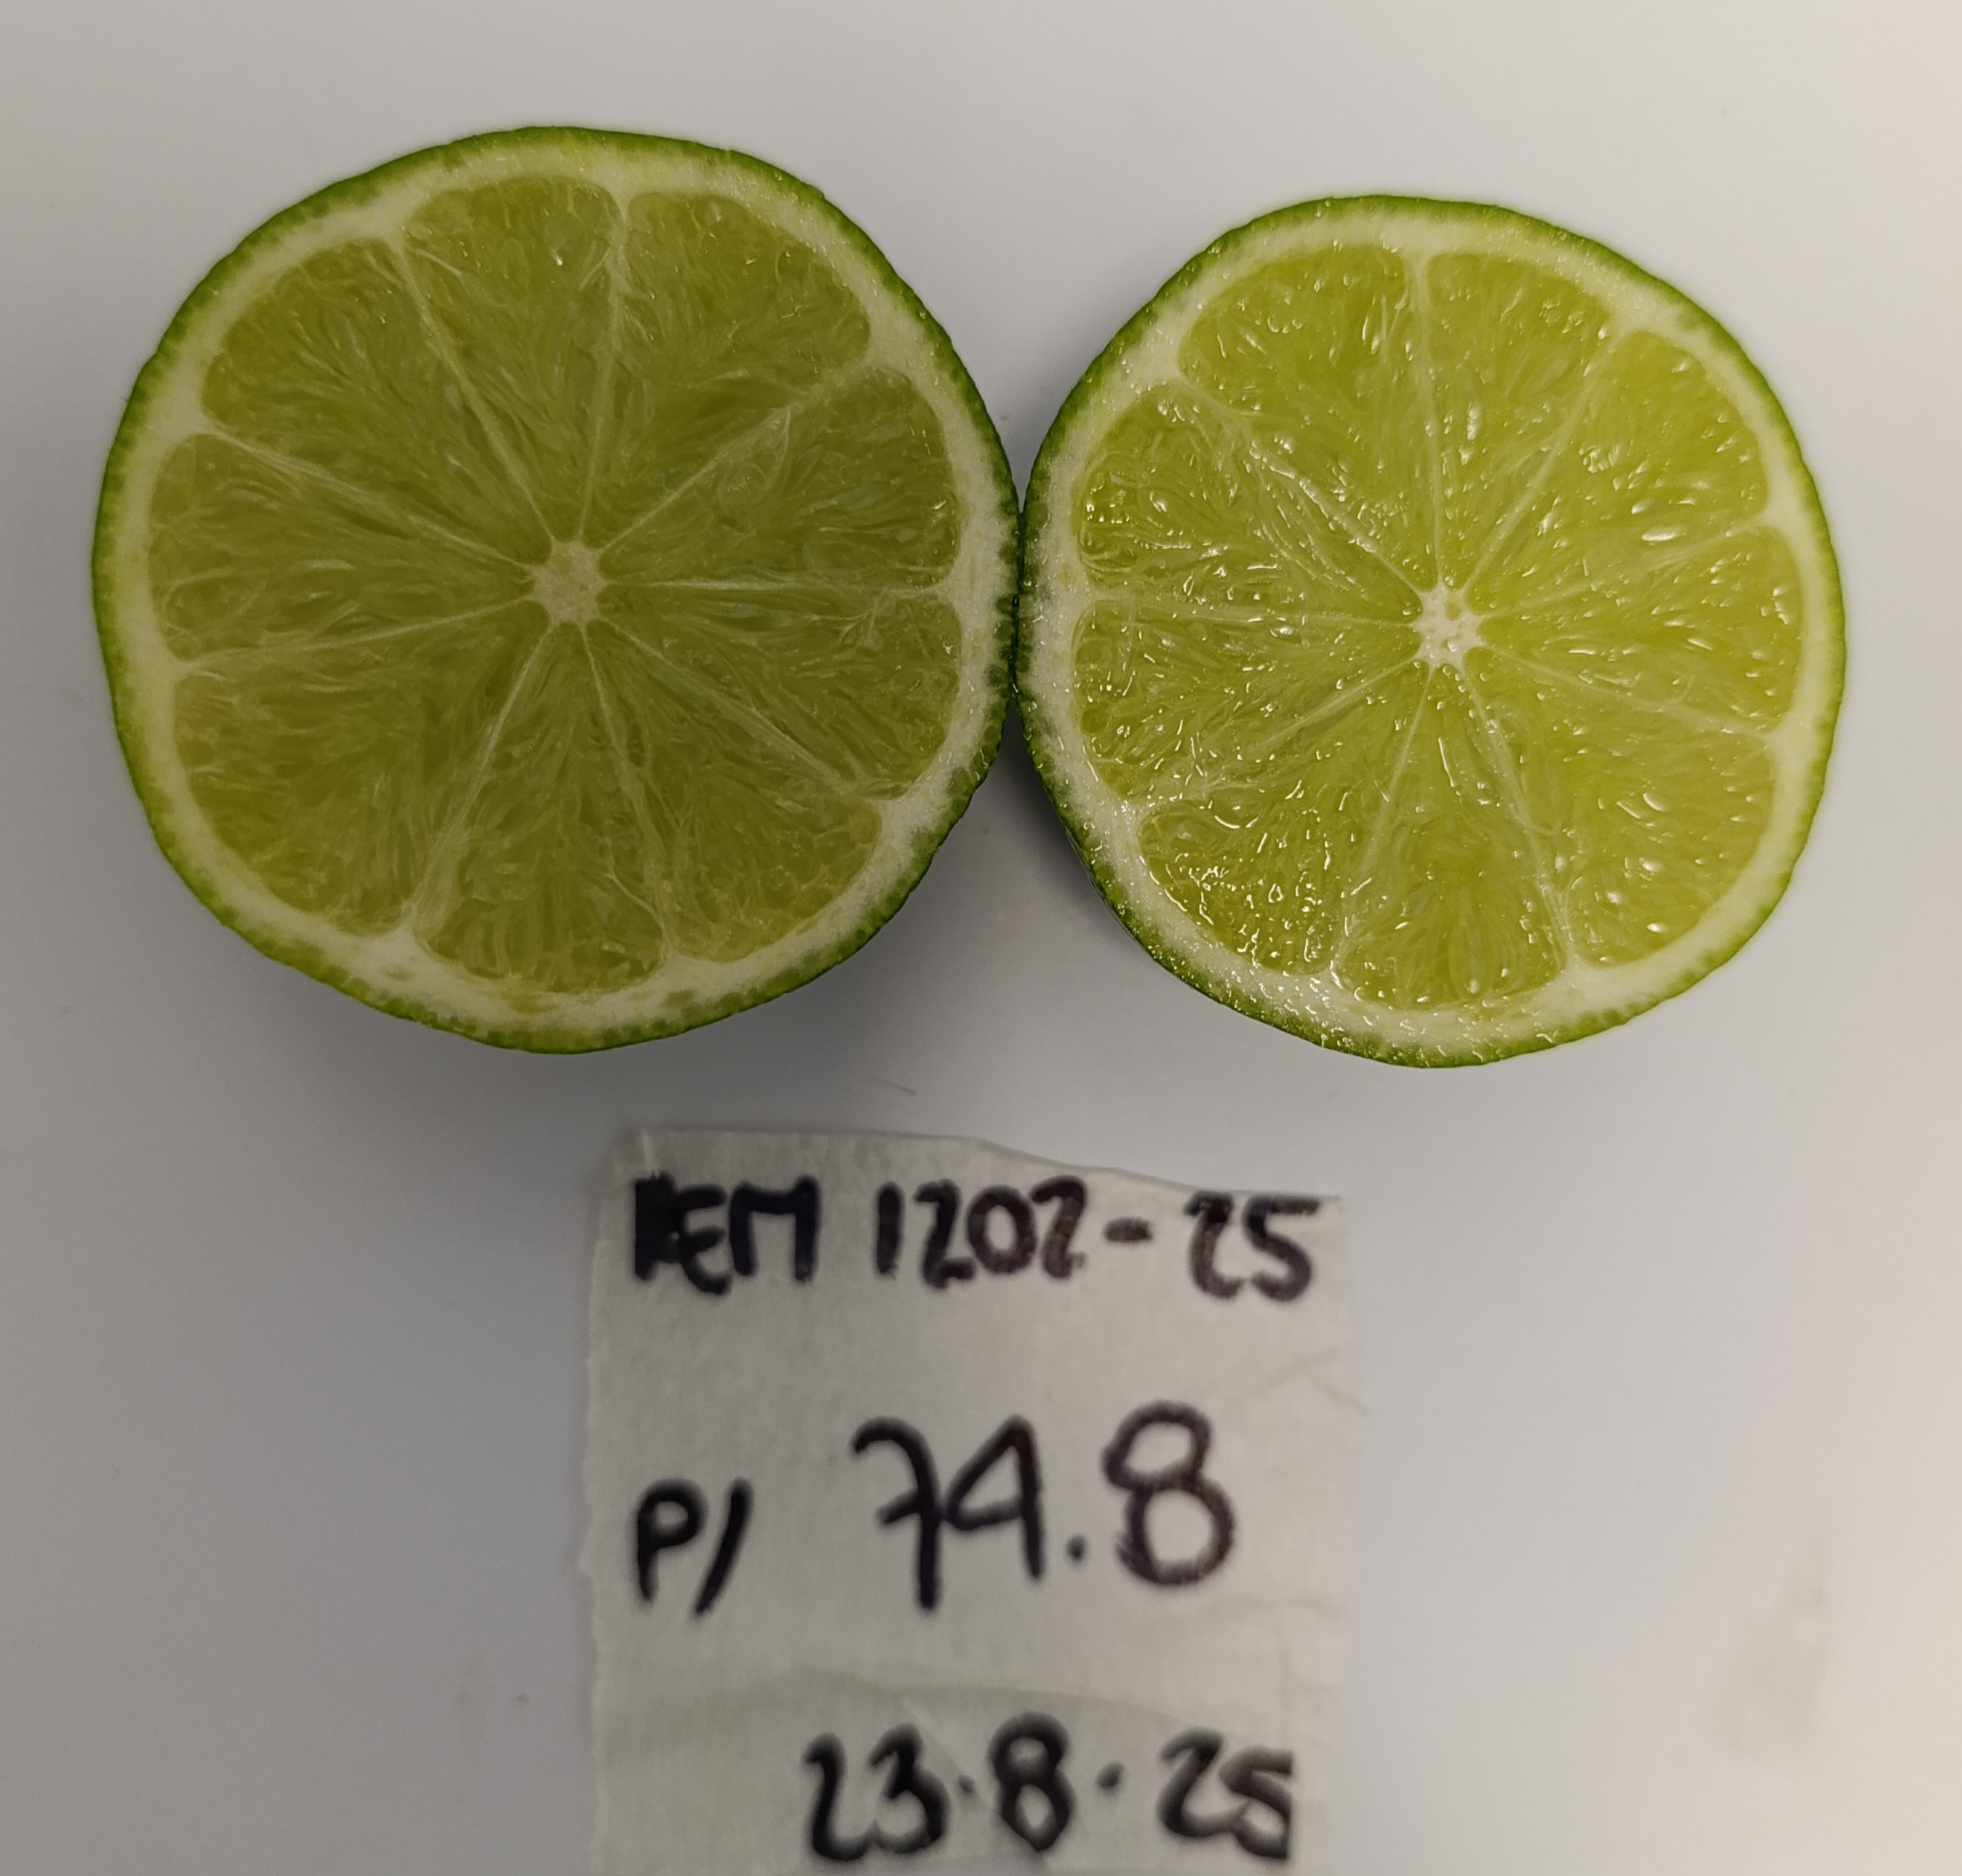 REM 1202-25
P/ 74.8
23.8.25